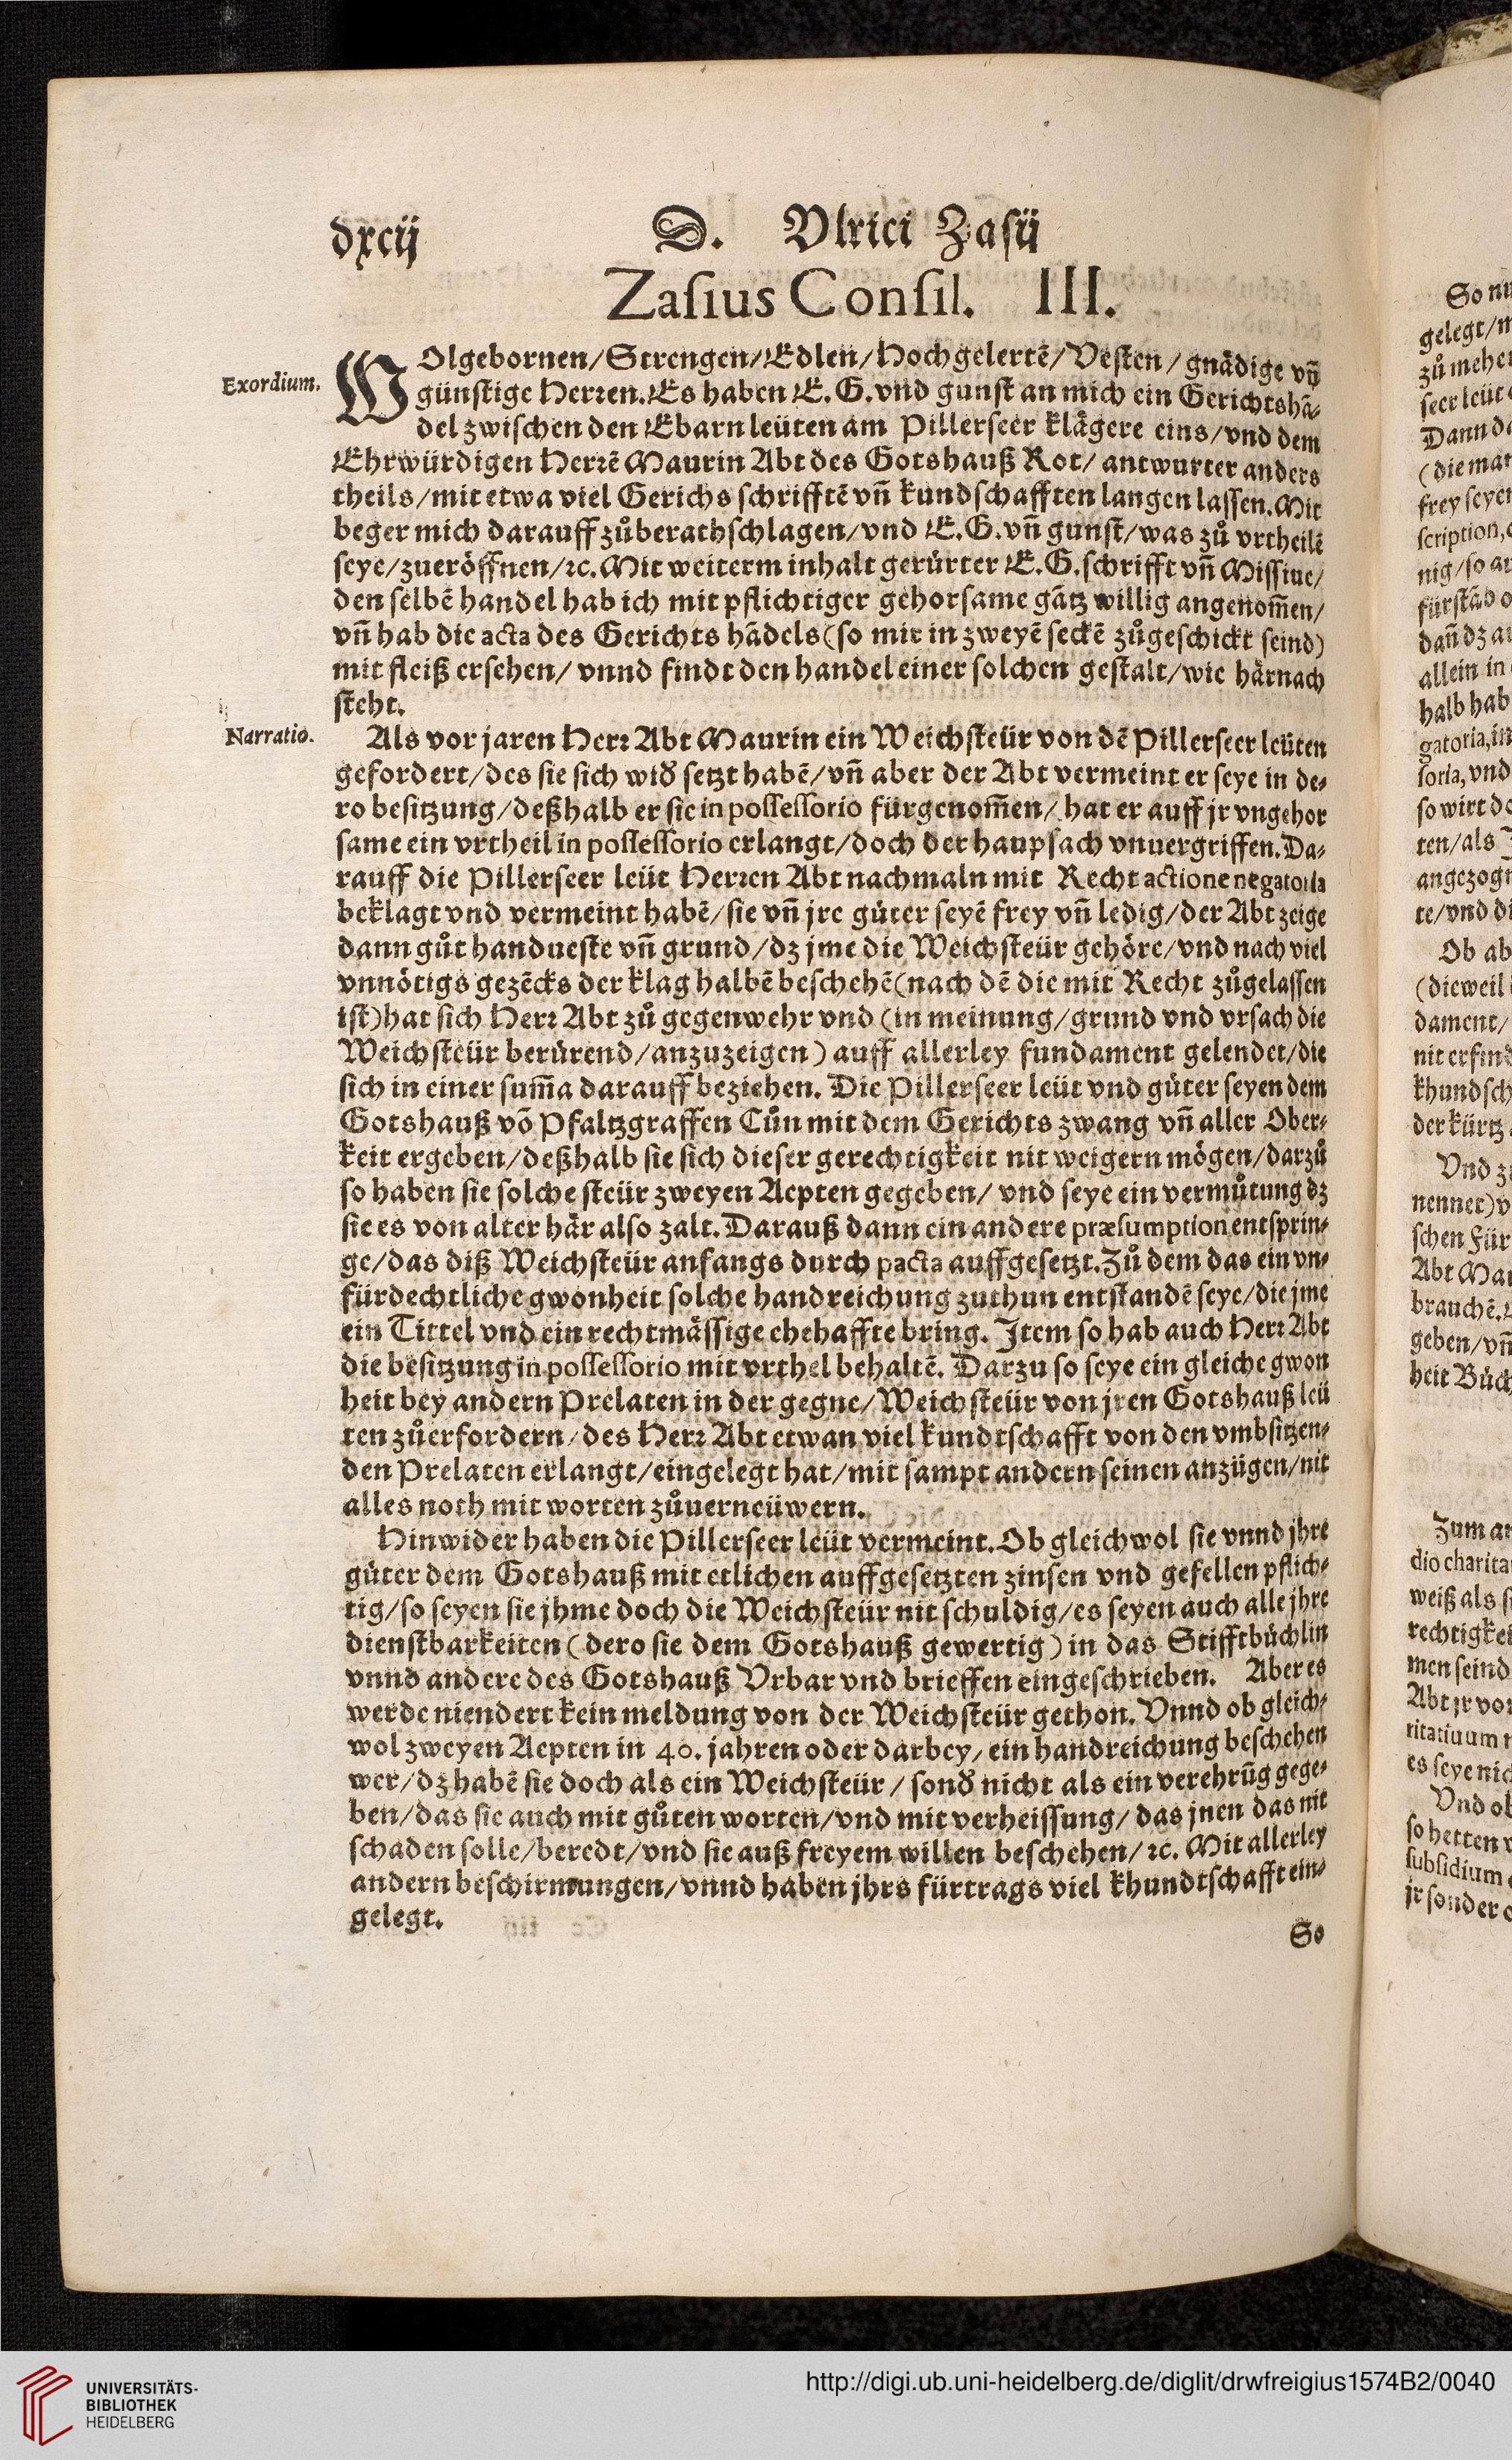 dxcij D. Vlrici Zasij
Zaſius Conſil. III.
Exordium.
WOlgebornen/Strengen/Edlen/Hochgelertē/Veſten/gnädige vñ
günſtige Herꝛen. Es haben E. G. vnd gunſt an mich ein Gerichtshā-
del zwiſchen den Ebarn leüten am Pillerſeer klägere eins/vnd dem
Ehrwürdigen Herꝛē Maurin Abt des Gotshauß Rot/antwurter anders
theils/mit etwa viel Gerichs ſchrifftē vñ kundſchafften langen laſſen. Mit
beger mich darauff zůberathſchlagen/vnd E. G. vñ gunſt/was zů vrtheilē
ſeye/zueröffnen/ꝛc. Mit weiterm inhalt gerürter E. G. ſchrifft vñ Miſſiue/
den ſelbē handel hab ich mit pflichtiger gehorſame gātz willig angenom̄en/
vñ hab die acta des Gerichts hādels (ſo mir in zweyē ſeckē zůgeſchickt ſeind)
mit fleiß erſehen/ vnnd findt den handel einer ſolchen geſtalt/wie härnach
ſteht.
Narratio.
Als vor jaren Herꝛ Abt Maurin ein Weichſteür von dē Pillerſeer leüten
gefordert/des ſie ſich wid̛ ſetzt habē/vñ aber der Abt vermeint er ſeye in de-
ro beſitzung/deßhalb er ſie in poſſeſſorio fürgenom̄en/hat er auff jr vngehor
ſame ein vrtheil in poſſeſſorio erlangt/doch der haupſach vnuergriffen. Da-
rauff die Pillerſeer leüt Herꝛen Abt nachmaln mit Recht actione negatoria
beklagt vnd vermeint habē/ſie vñ jre güter ſeyē frey vñ ledig/der Abt zeige
dann gůt handueſte vñ grund/dz jme die Weichſteür gehöre/vnd nach viel
vnnötigs gezēcks der klag halbē beſchehē (nach dē die mit Recht zůgelaſſen
iſt) hat ſich Herꝛ Abt zů gegenwehr vnd (in meinung/grund vnd vrſach die
Weichſteür berürend/anzuzeigen) auff allerley fundament gelendet/die
ſich in einer ſum̄a darauff beziehen. Die Pillerſeer leüt vnd güter ſeyen dem
Gotshauß vō Pfaltzgraffen Cůn mit dem Gerichts zwang vñ aller Ober-
keit ergeben/deßhalb ſie ſich dieſer gerechtigkeit nit weigern mögen/darzů
ſo haben ſie ſolche ſteür zweyen Aepten gegeben/ vnd ſeye ein vermůtung dz
ſie es von alter här alſo zalt. Darauß dann ein andere præſumption entſprin-
ge/das diß Weichſteür anfangs durch pacta auffgeſetzt. Zů dem das ein vn-
fürdechtliche gwonheit ſolche handreichung zuthun entſtandē ſeye/die jme
ein Tittel vnd ein rechtmäſſige ehehaffte bring. Item ſo hab auch Herꝛ Abt
die beſitzung in poſſeſſorio mit vrthel behaltē. Darzu ſo ſeye ein gleiche gwon
heit bey andern Prelaten in der gegne/Weichſteür von jren Gotshauß leü
ten zůerfordern/des Herꝛ Abt etwan viel kundtſchafft von den vmbſitzen-
den Prelaten erlangt/eingelegt hat/mit ſampt andern ſeinen anzügen/nit
alles noth mit worten zůuerneüwern.
Hinwider haben die Pillerſeer leüt vermeint. Ob gleichwol ſie vnnd jhre
güter dem Gotshauß mit etlichen auffgeſetzten zinſen vnd gefellen pflich-
tig/ſo ſeyen ſie jhme doch die Weichſteür nit ſchuldig/es ſeyen auch alle jhre
dienſtbarkeiten (dero ſie dem Gotshauß gewertig) in das Stifftbüchlin
vnnd andere des Gotshauß Vrbar vnd brieffen eingeſchrieben. Aber es
werde niendert kein meldung von der Weichſteür gethon. Vnnd ob gleich-
wol zweyen Aepten in 40. jahren oder darbey/ein handreichung beſchehen
wer/dz habē ſie doch als ein Weichſteür/ſond̛ nicht als ein verehrūg gege-
ben/das ſie auch mit gůten worten/vnd mit verheiſſung/das jnen das nit
ſchaden ſolle/beredt/vnd ſie auß freyem willen beſchehen/ꝛc. Mit allerley
andern beſchirmungen/vnnd haben jhrs fürtrags viel khundtſchafft ein-
gelegt.
So
So nu
gelegt/
zů meher
ſeer leüt
Dann d
(die mat
frey ſeyen
ſcription,
nig/ſo a
fürſtād o
dañ dz a
allein in
halb hab
gatoria, in
ſoria, vnd
ſo wirt d
ten/als
angezog
te/vnd di
Ob ab
(dieweil
dament/
nit erfind
khundſch
der kürtz
Vnd z
nennet) v
ſchen Für
Abt Ma
brauchē.
geben/vñ
heit Büch
Zum a
dio charita
weiß als
rechtigkei
men ſeind
Abt jr vo
ritatiuum
es ſeye nic
Vnd ob
ſo hetten
ſubſidium
jr ſonder
UNIVERSITÄTS-
BIBLIOTHEK
HEIDELBERG
http://digi.ub.uni-heidelberg.de/diglit/drwfreigius1574B2/0040